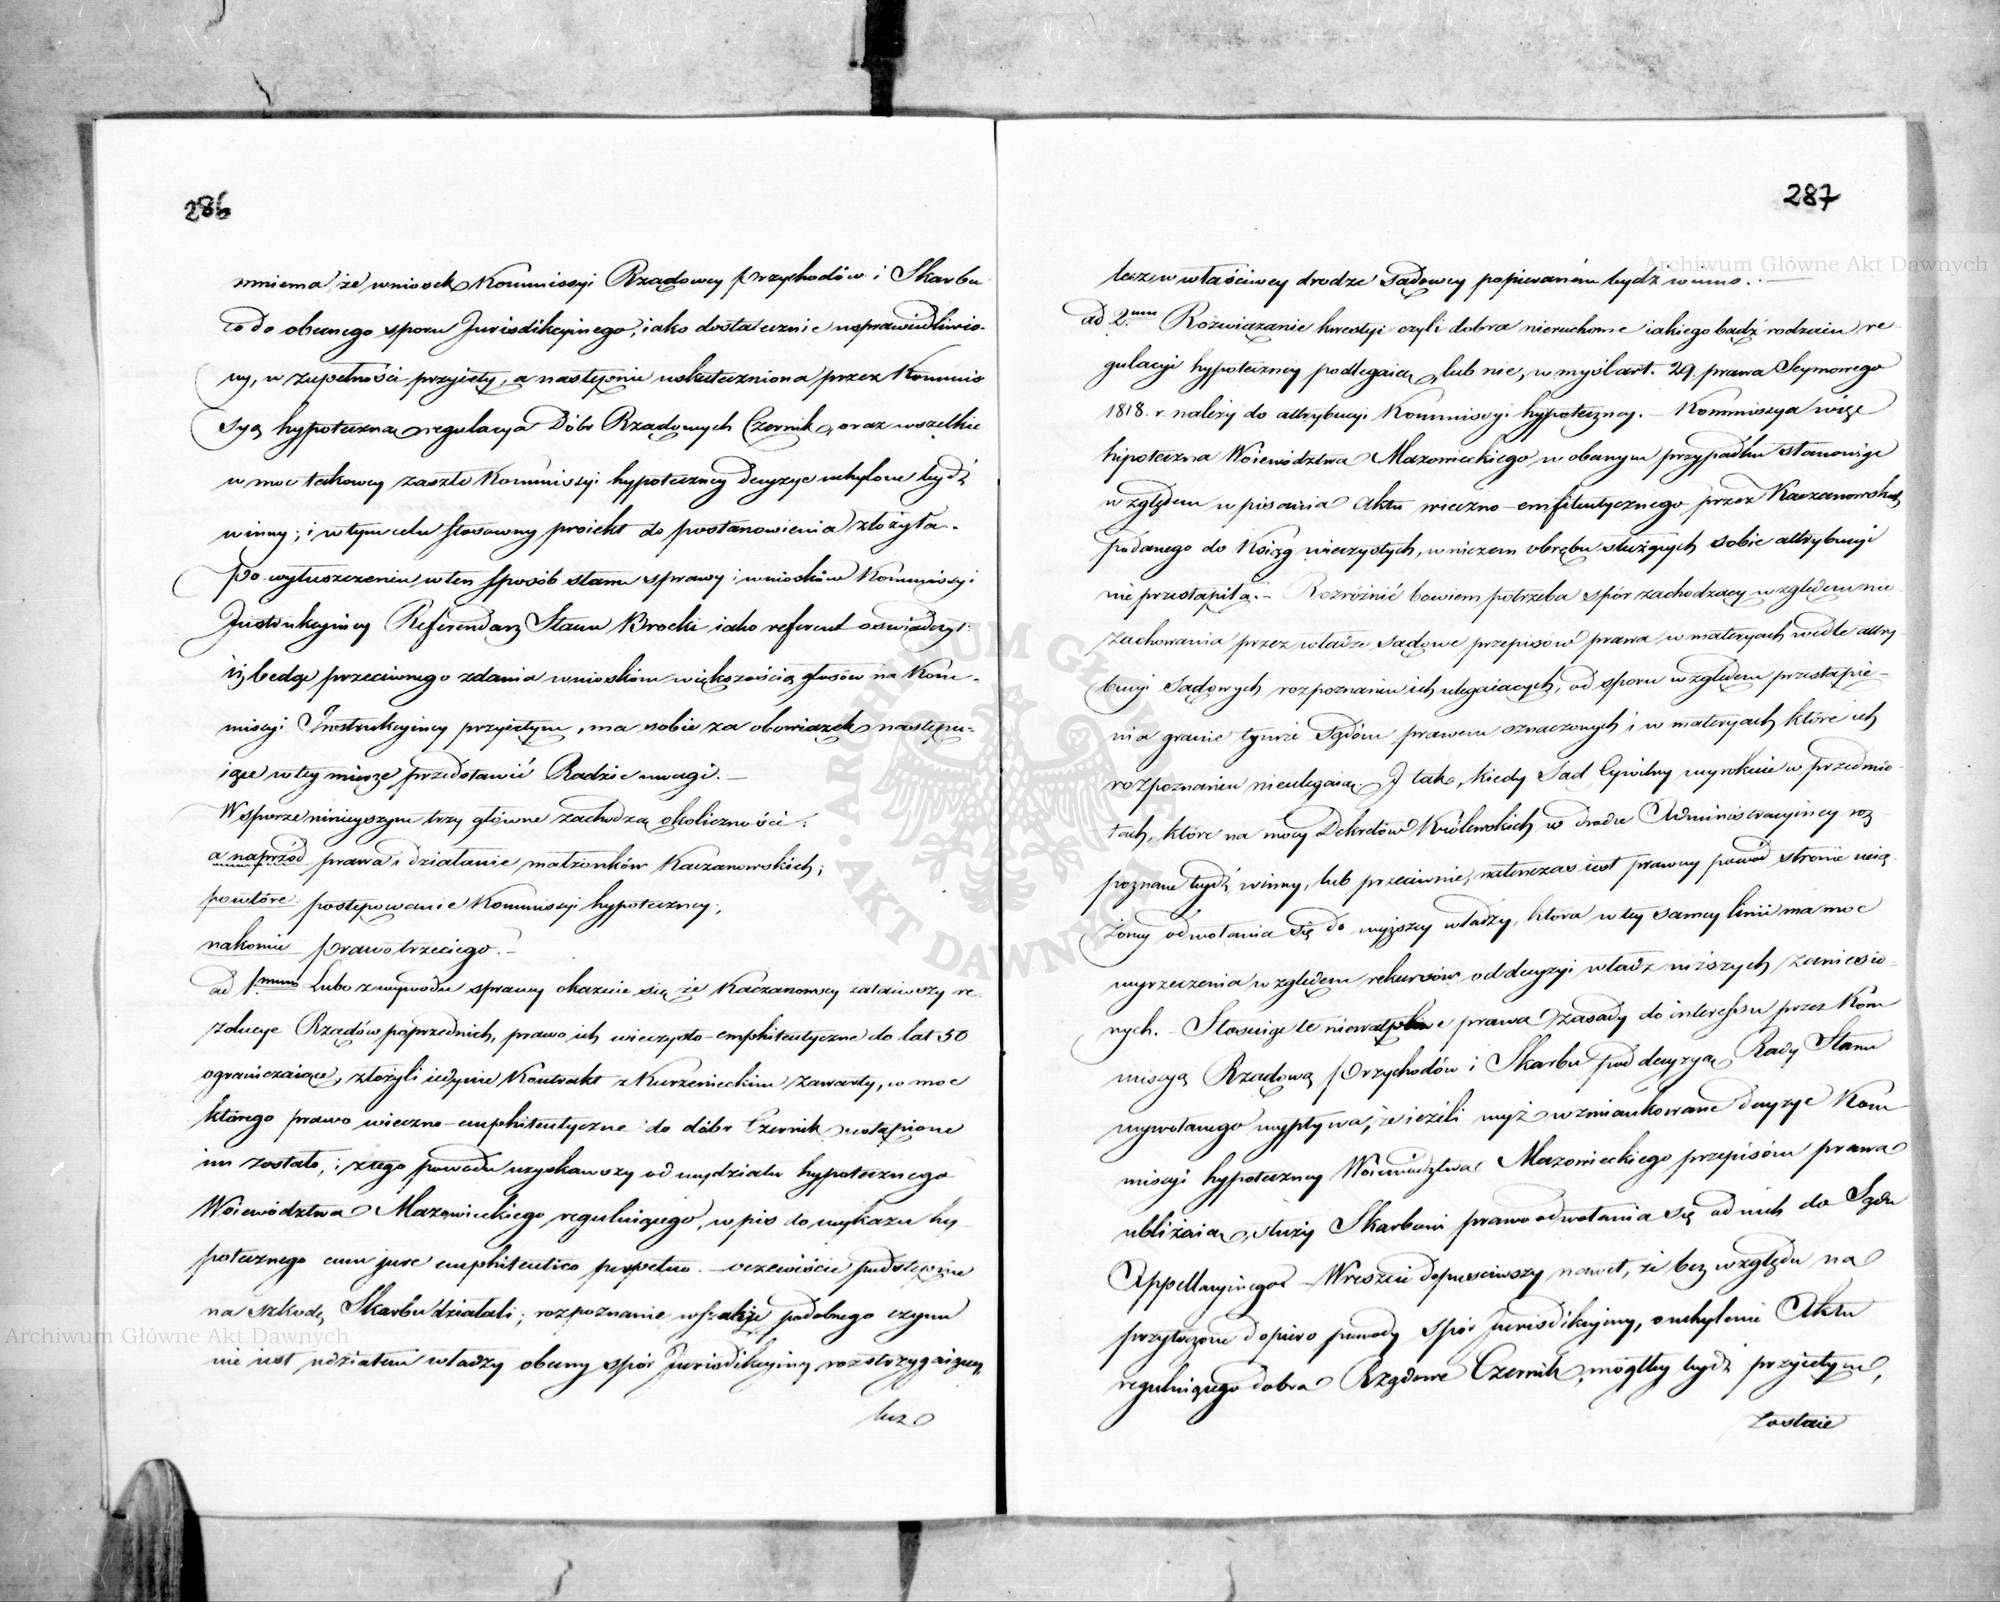 286
mniema że wniosek Kommissyi Rządowey Przychodów i Skarbu
co do obecnego sporu Jurisdikcyinego, iako dostatecznie usprawiedliwio-
ny, w zupełności przyięty, a następnie uskuteczniona przez Kommis
syą hypoteczną regulacya Dóbr Rządowych Czernik, oraz wszelkie
w moc takowey zaszłe Kommissyi hypoteczney decyzye uchylone bydź
winny; i w tym celu stosowny proiekt do postanowienia złożyła.-
Po wyłuszczeniu w ten sposób stanu sprawy i wniosków Kommissyi
Instrukcyiney Referendarz Stanu Brocki iako referent oświadczył:
iż będąc przeciwnego zdania wnioskom większością głosów na Kom-
missyi Instrukcyiney przyiętym, ma sobie za obowiązek następu-
iące w tey mierze przedstawić Radzie uwagi.-
W sporze ninieyszym trzy główne zachodzą okoliczności:
a naprzód prawa i działanie małżonków Kaczanowskich;
powtóre postępowanie Kommissyi hypoteczney;
nakoniec prawo trzeciego.-
ad 1mum Lubo z wywodu sprawy okazuie się że Kaczanowscy zataiwszy re-
zolucye Rządów poprzednich, prawo ich wieczysto-emphiteutyczne do lat 50
ograniczaiące, złożyli iedynie Kontrakt z Kurzenieckim zawarty, w moc
którego prawo wieczno-emphiteutyczne do dóbr Czernik ustąpione
im zostało, i z tego powodu uzyskawszy od wydziału hypotecznego
Woiewództwa Mazowieckiego reguluiącego, wpis do wykazu hy-
potecznego cum jure emphiteutico perpetuo.- oczewiście podstępnie
na szkodę Skarbu działali; rozpoznanie wszakże podobnego czynu
nie iest udziałem władzy obecny spór Jurisdikcyiny rozstrzygaiącey,
lecz
287
lecz w właściwey drodze Sądowey popieranem bydź winno.-
ad 2.mum Rozwiązanie kwestyi czyli dobra nieruchome iakiego bądź rodzaiu re-
gulacyi hypoteczney podlegaią, lub nie, w myśl art. 29 prawa Seymowego
1818. r. należy do attrybucyi Kommissyi hypoteczney.- Kommissya więc
hipoteczna Woiewództwa Mazowieckiego w obecnym przypadku stanowiąc
względem wpisania Aktu wieczno-emfiteutycznego przez Kaczanowskich
podanego do Ksiąg wieczystych, w niczem obrębu służących sobie attrybucyi
nie przestąpiła.- Rozróżnić bowiem potrzeba spór zachodzący względem nie
zachowania przez władze Sądowe przepisów prawa w materyach wedle attry-
bucyi Sądowych rozpoznaniu ich ulegaiących, od sporu względem przestąpie-
nia granic tymże Sądom prawem oznaczonych i w materyach które ich
rozpoznaniu nieulegaią. I tak, kiedy Sąd Cywilny wyrokuie w przedmio-
tach, które na mocy Dekretów Królewskich w drodze Administracyiney roz-
poznane bydź winny, lub przeciwnie, natenczas iest prawny powód stronie ucią-
żoney odwołania się do wyższey władzy, która w tey samey linii ma moc
wyrzeczenia względem rekursów od decyzyi władz niższych zaniesio-
nych.- Stosuiąc te niewątpliwe prawa zasady do interessu przez Kom
missyą Rządową Przychodów i Skarbu pod decyzyą Rady Stanu
wywołanego wypływa, że ieżeli wyż wzmiankowane decyzye Kom
missyi hypoteczney Woiewództwa Mazowieckiego przepisom prawa
ubliżaią, służy Skarbowi prawo odwołania się od nich do Sądu
Appellacyinego.- Wreszcie dopuściwszy nawet, że bez względu na
przytoczone dopiero powody spór Jurisdikcyiny, o uchylenie Aktu
reguluiącego dobra Rządowe Czernik, mógłby bydź przyiętym,
zostaie
Archiwum Główne Akt Dawnych
Archiwum Główne Akt Dawnych
ARCHIWUM GŁÓWNE AKT DAWNYCH